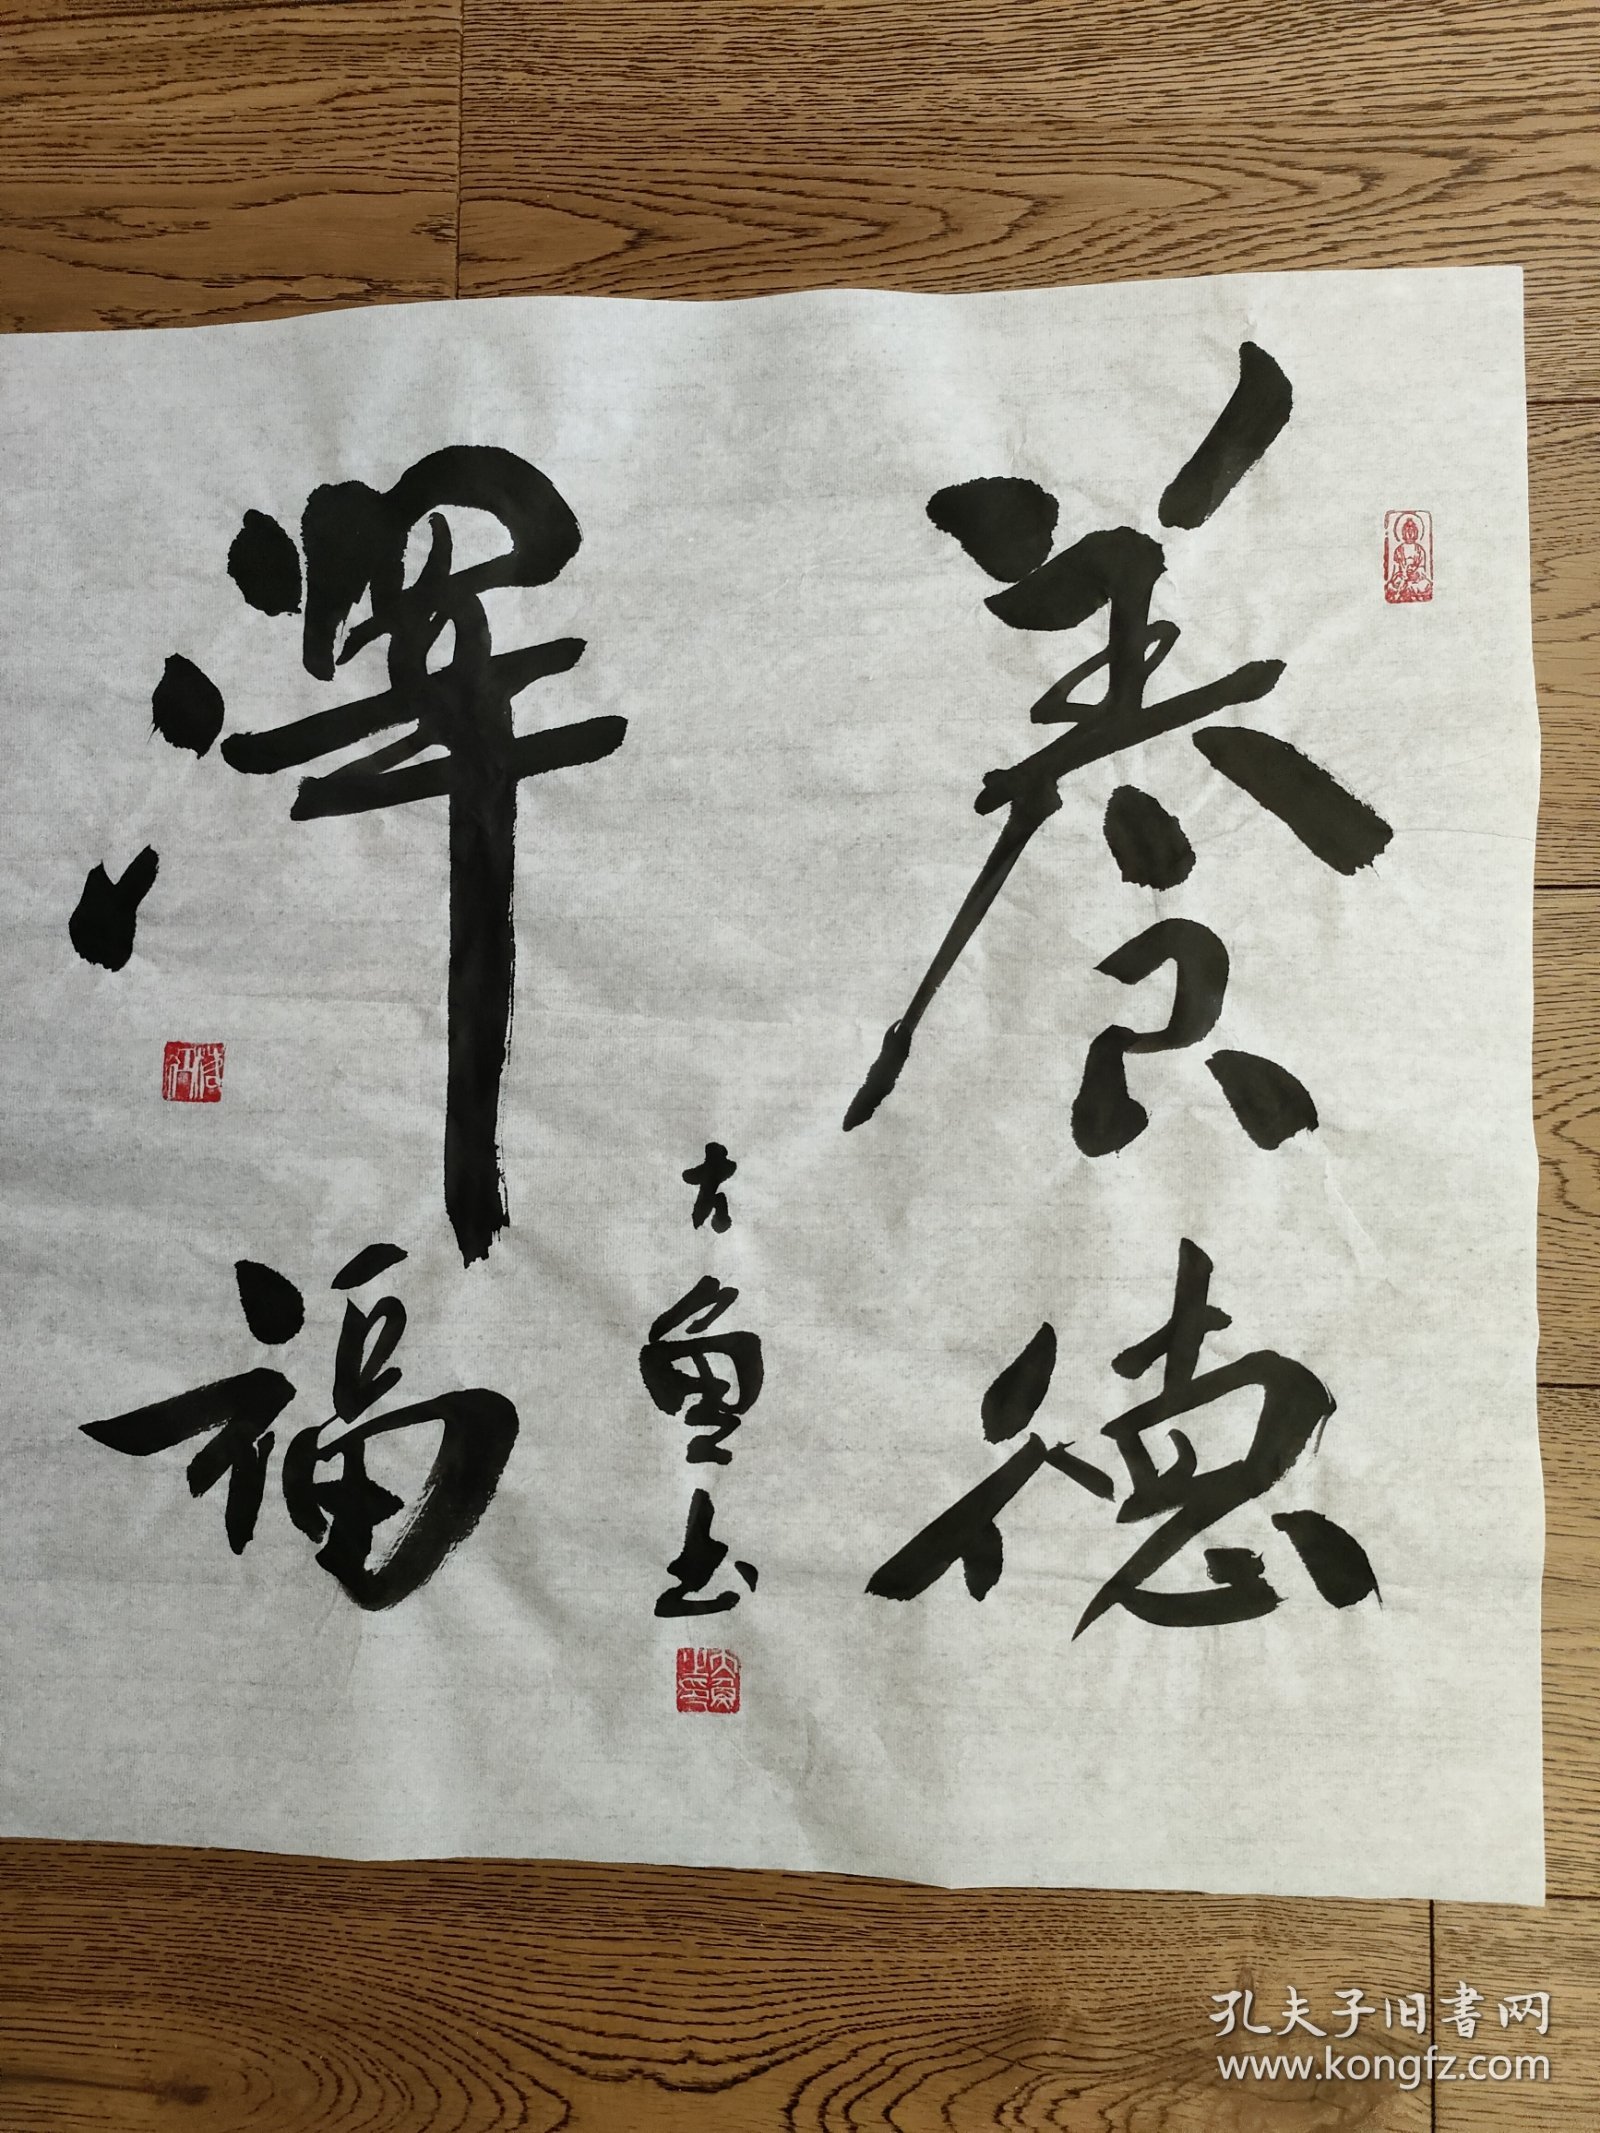 養德
澤福
古鱼书
孔夫子旧書网
www.kongfz.com